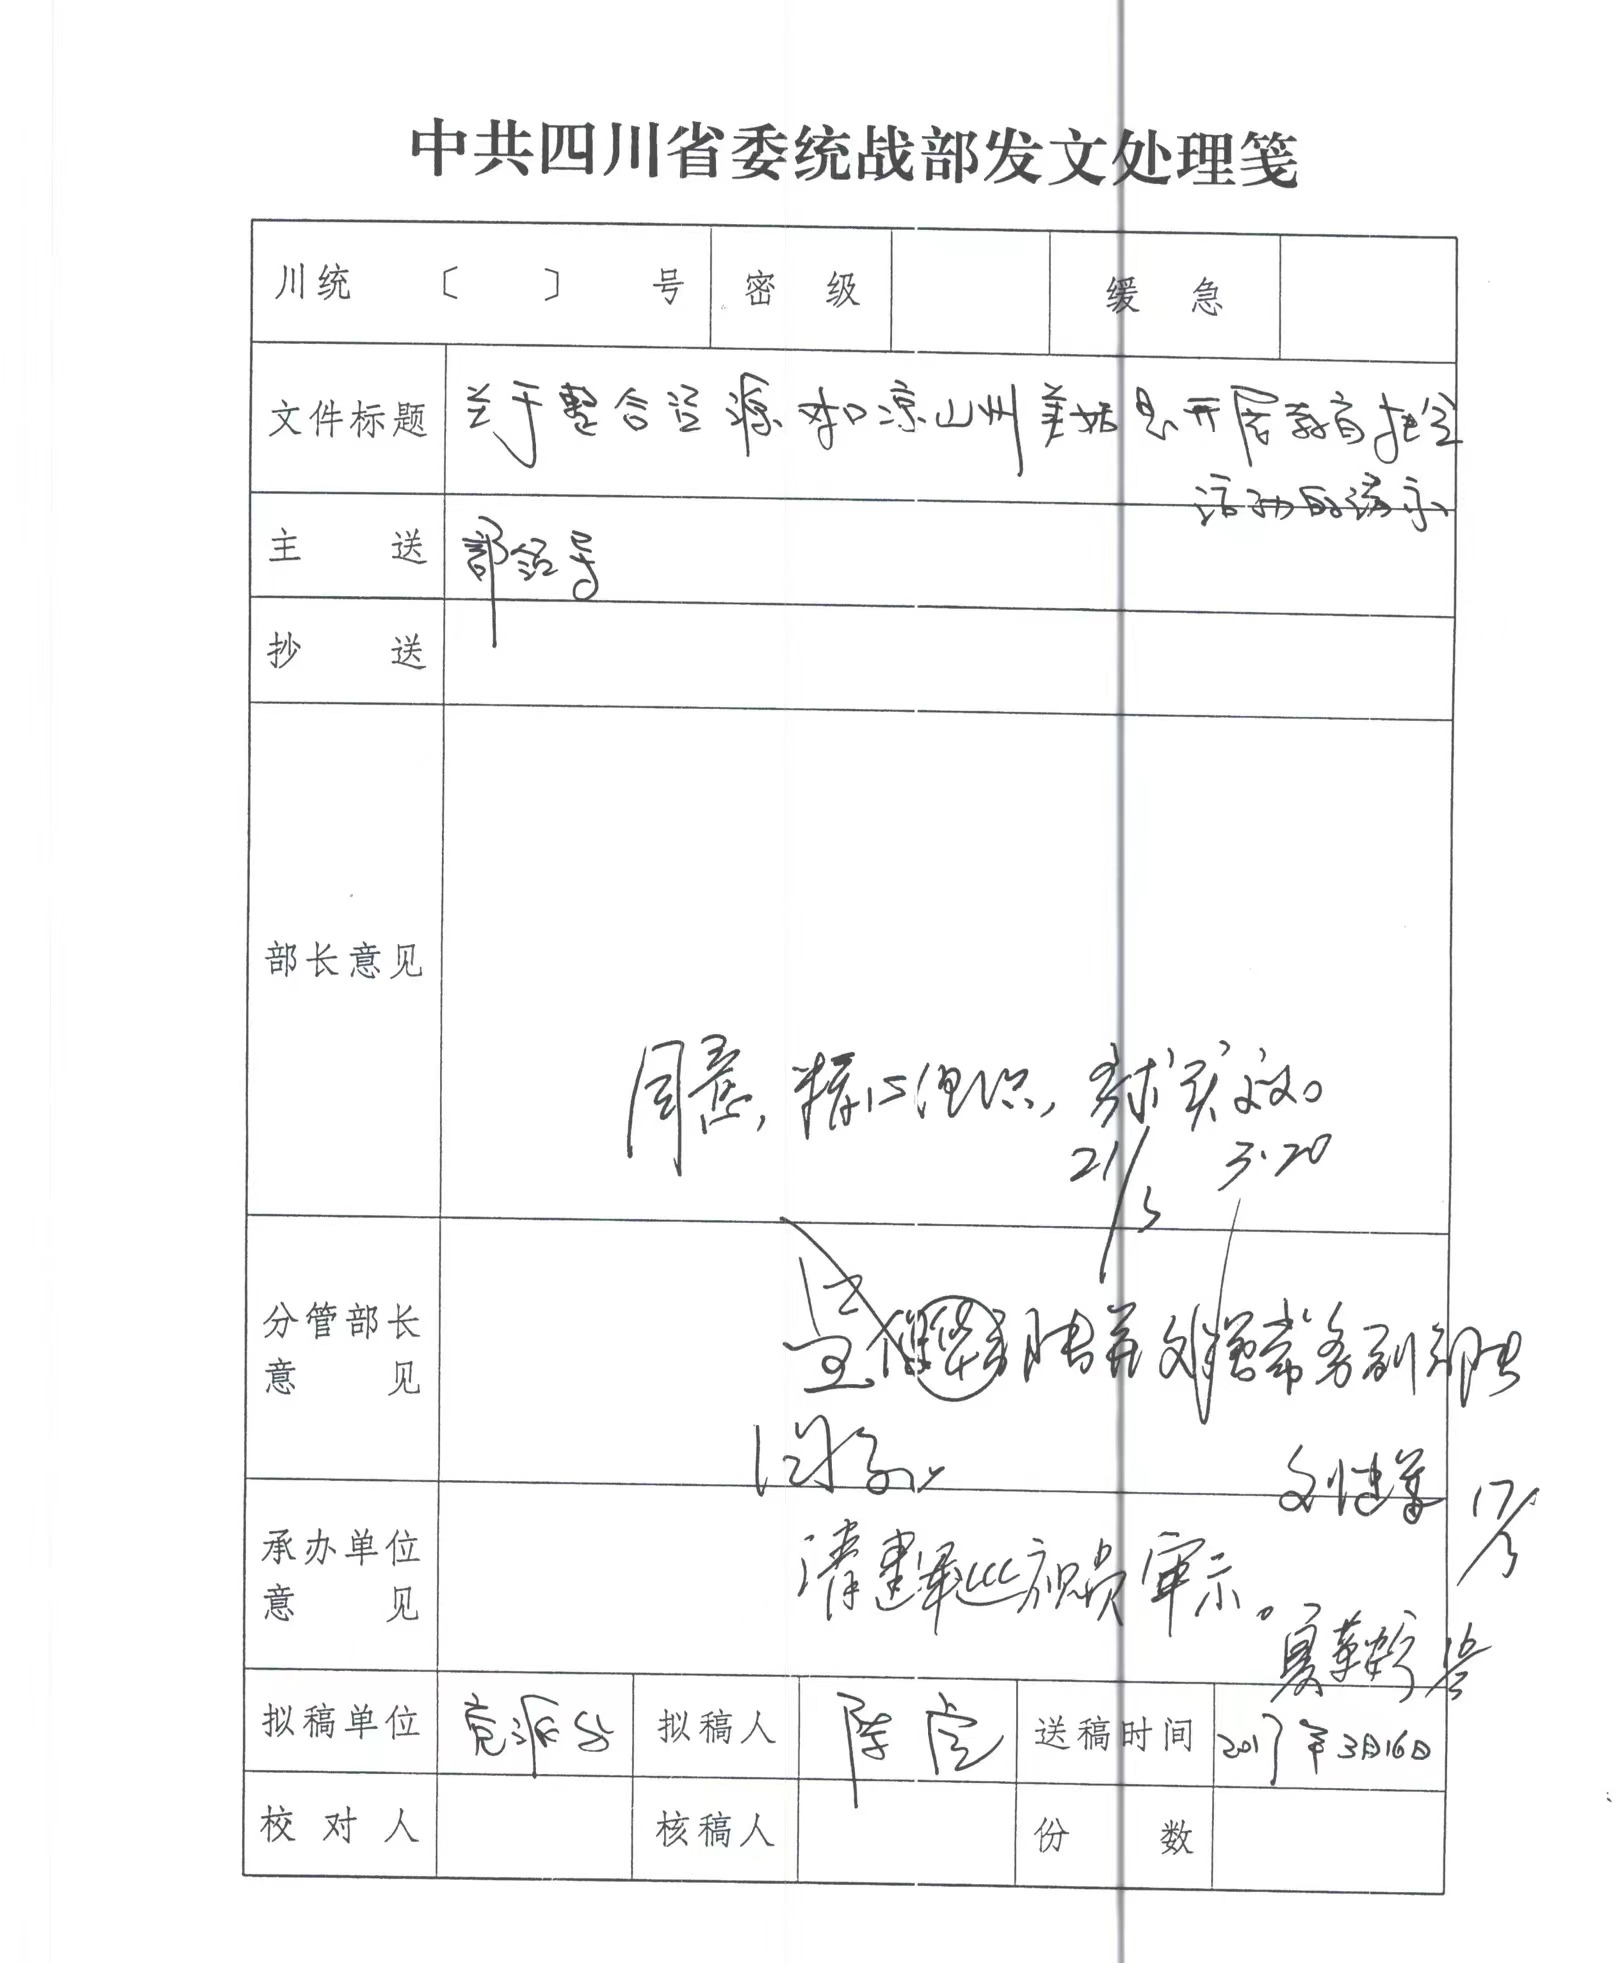 中共四川省委统战部发文处理笺
川统 〔 〕 号 密 级 缓 急
文件标题 关于整合资源对口凉山州美姑县开展教育
活动的请示
主 送 部领导
抄 送
部长意见
同意，精心组织，务求实效。
21/3 3.20
分管部长
意 见
呈 部长并 常务副部长
17/3
承办单位
意 见
请建军巡视员审示。
拟稿单位 党派处 拟稿人 陈 送稿时间 2017年3月16日
校 对 人 核稿人 份 数